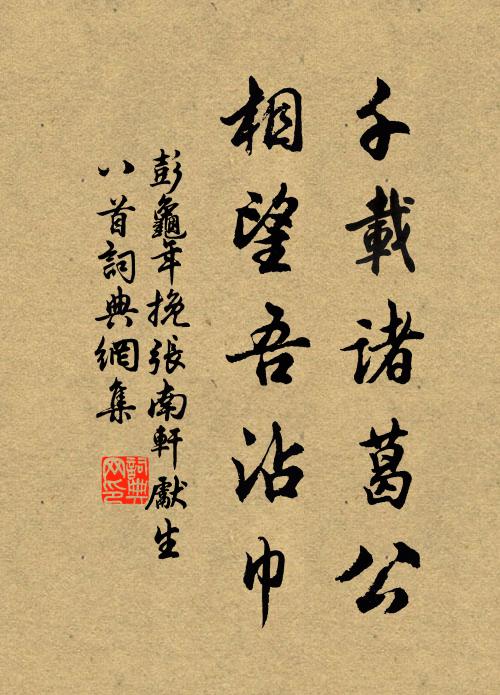 千載諸葛公
相望吾沾巾
彭龜年挽張南軒獻生
八首詞典網集
詞典
网印